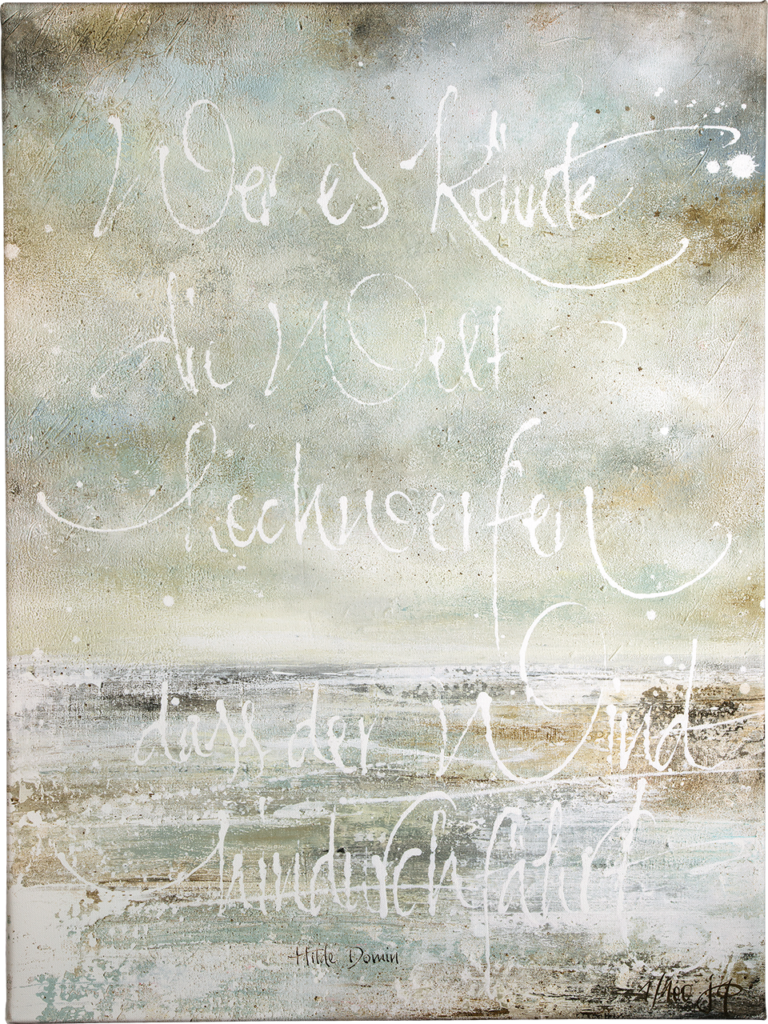 Wer es könnte
die Welt
hochwerfen
dass der Wind
hindurchfährt
Hilde Domin